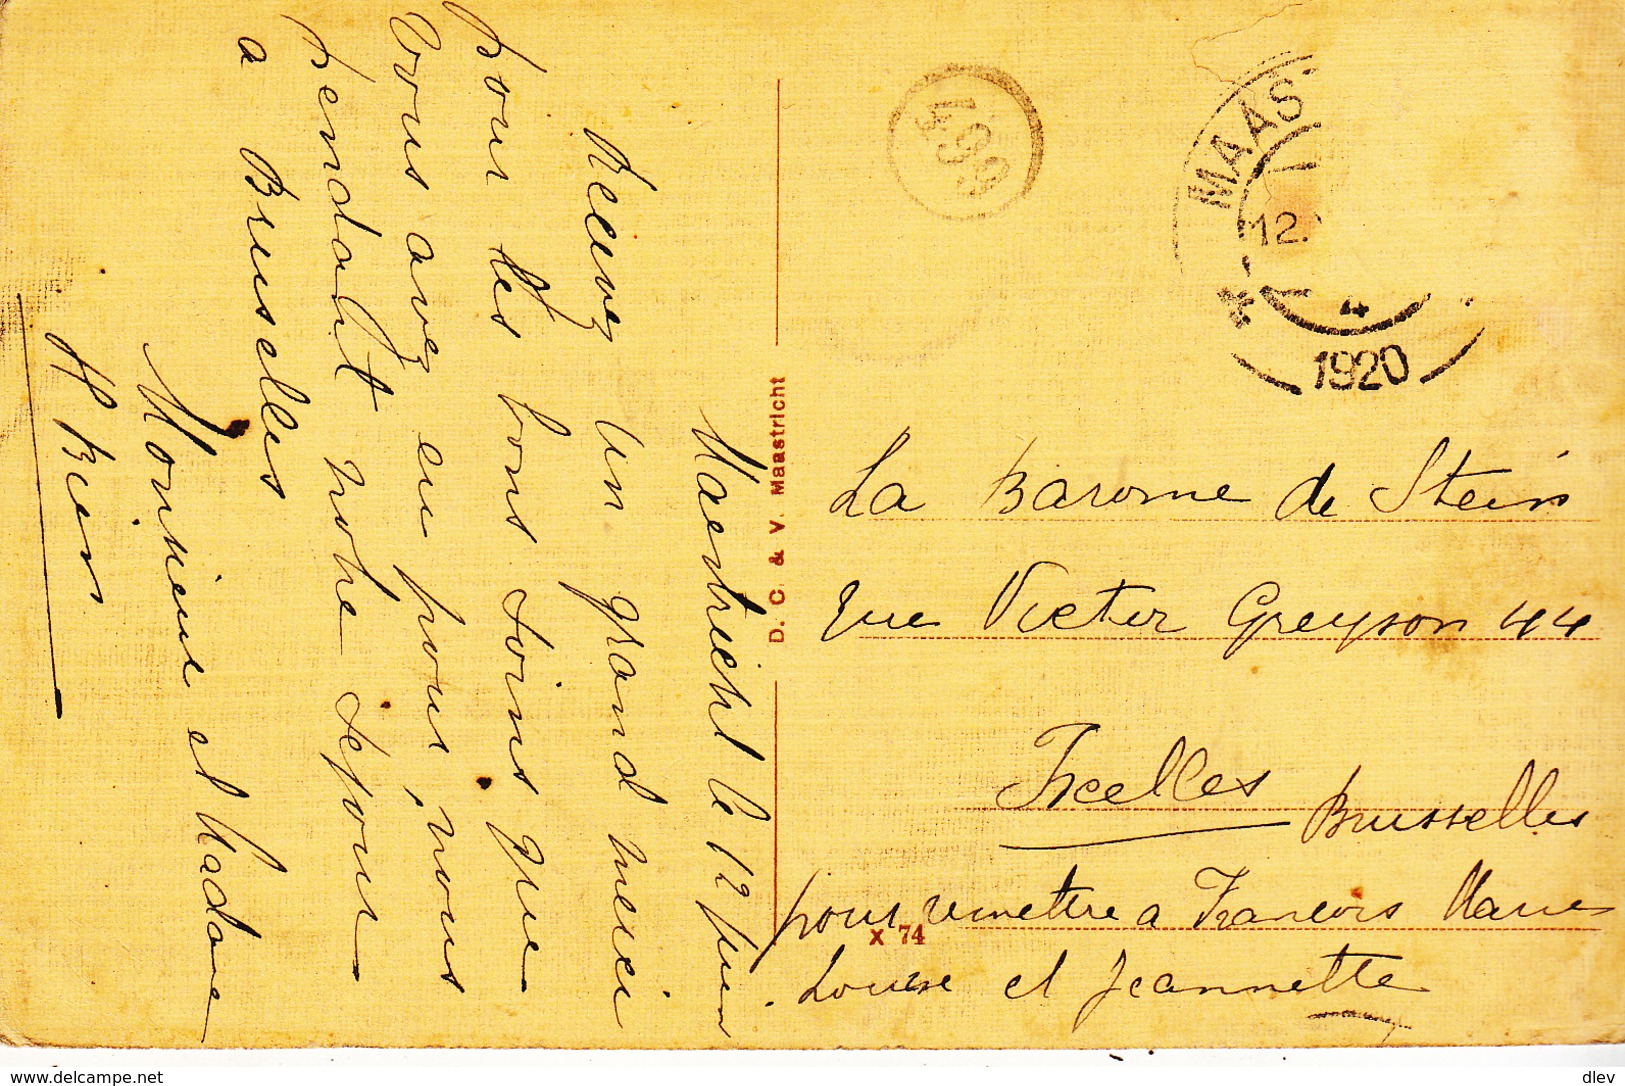 Maestricht le 12 juin
Recevez un grand merci
pour les bons soins que
vous avez eu pour nous
pendant notre sejour
a Bruselles
Monsieur et Madame
H Bien
D. C. & V. Maastricht
X 74
499
MAAS
12.
4
1920
La Baronne de Stein
rue Victor Greyson 44
Ixelles
Brusselles
pour remettre a Francois Marie
Louise et Jeannette
www.delcampe.net
dlev